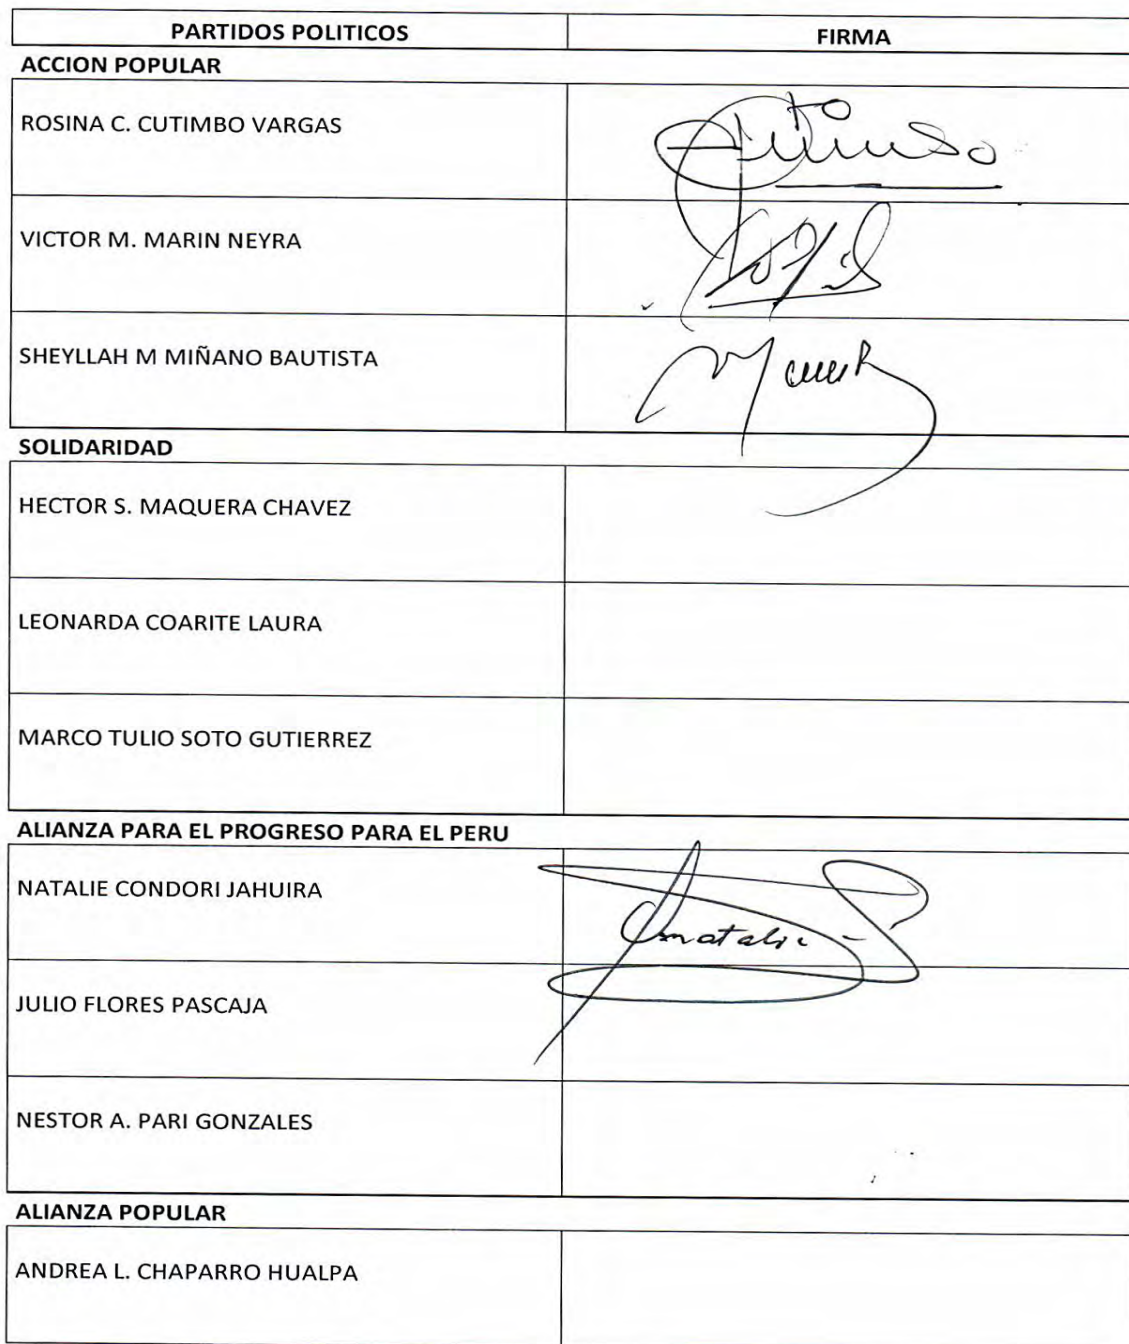 PARTIDOS POLITICOS FIRMA
ACCION POPULAR
ROSINA C. CUTIMBO VARGAS
VICTOR M. MARIN NEYRA
SHEYLLAH M MIÑANO BAUTISTA
SOLIDARIDAD
HECTOR S. MAQUERA CHAVEZ
LEONARDA COARITE LAURA
MARCO TULIO SOTO GUTIERREZ
ALIANZA PARA EL PROGRESO PARA EL PERU
NATALIE CONDORI JAHUIRA
JULIO FLORES PASCAJA
NESTOR A. PARI GONZALES
ALIANZA POPULAR
ANDREA L. CHAPARRO HUALPA